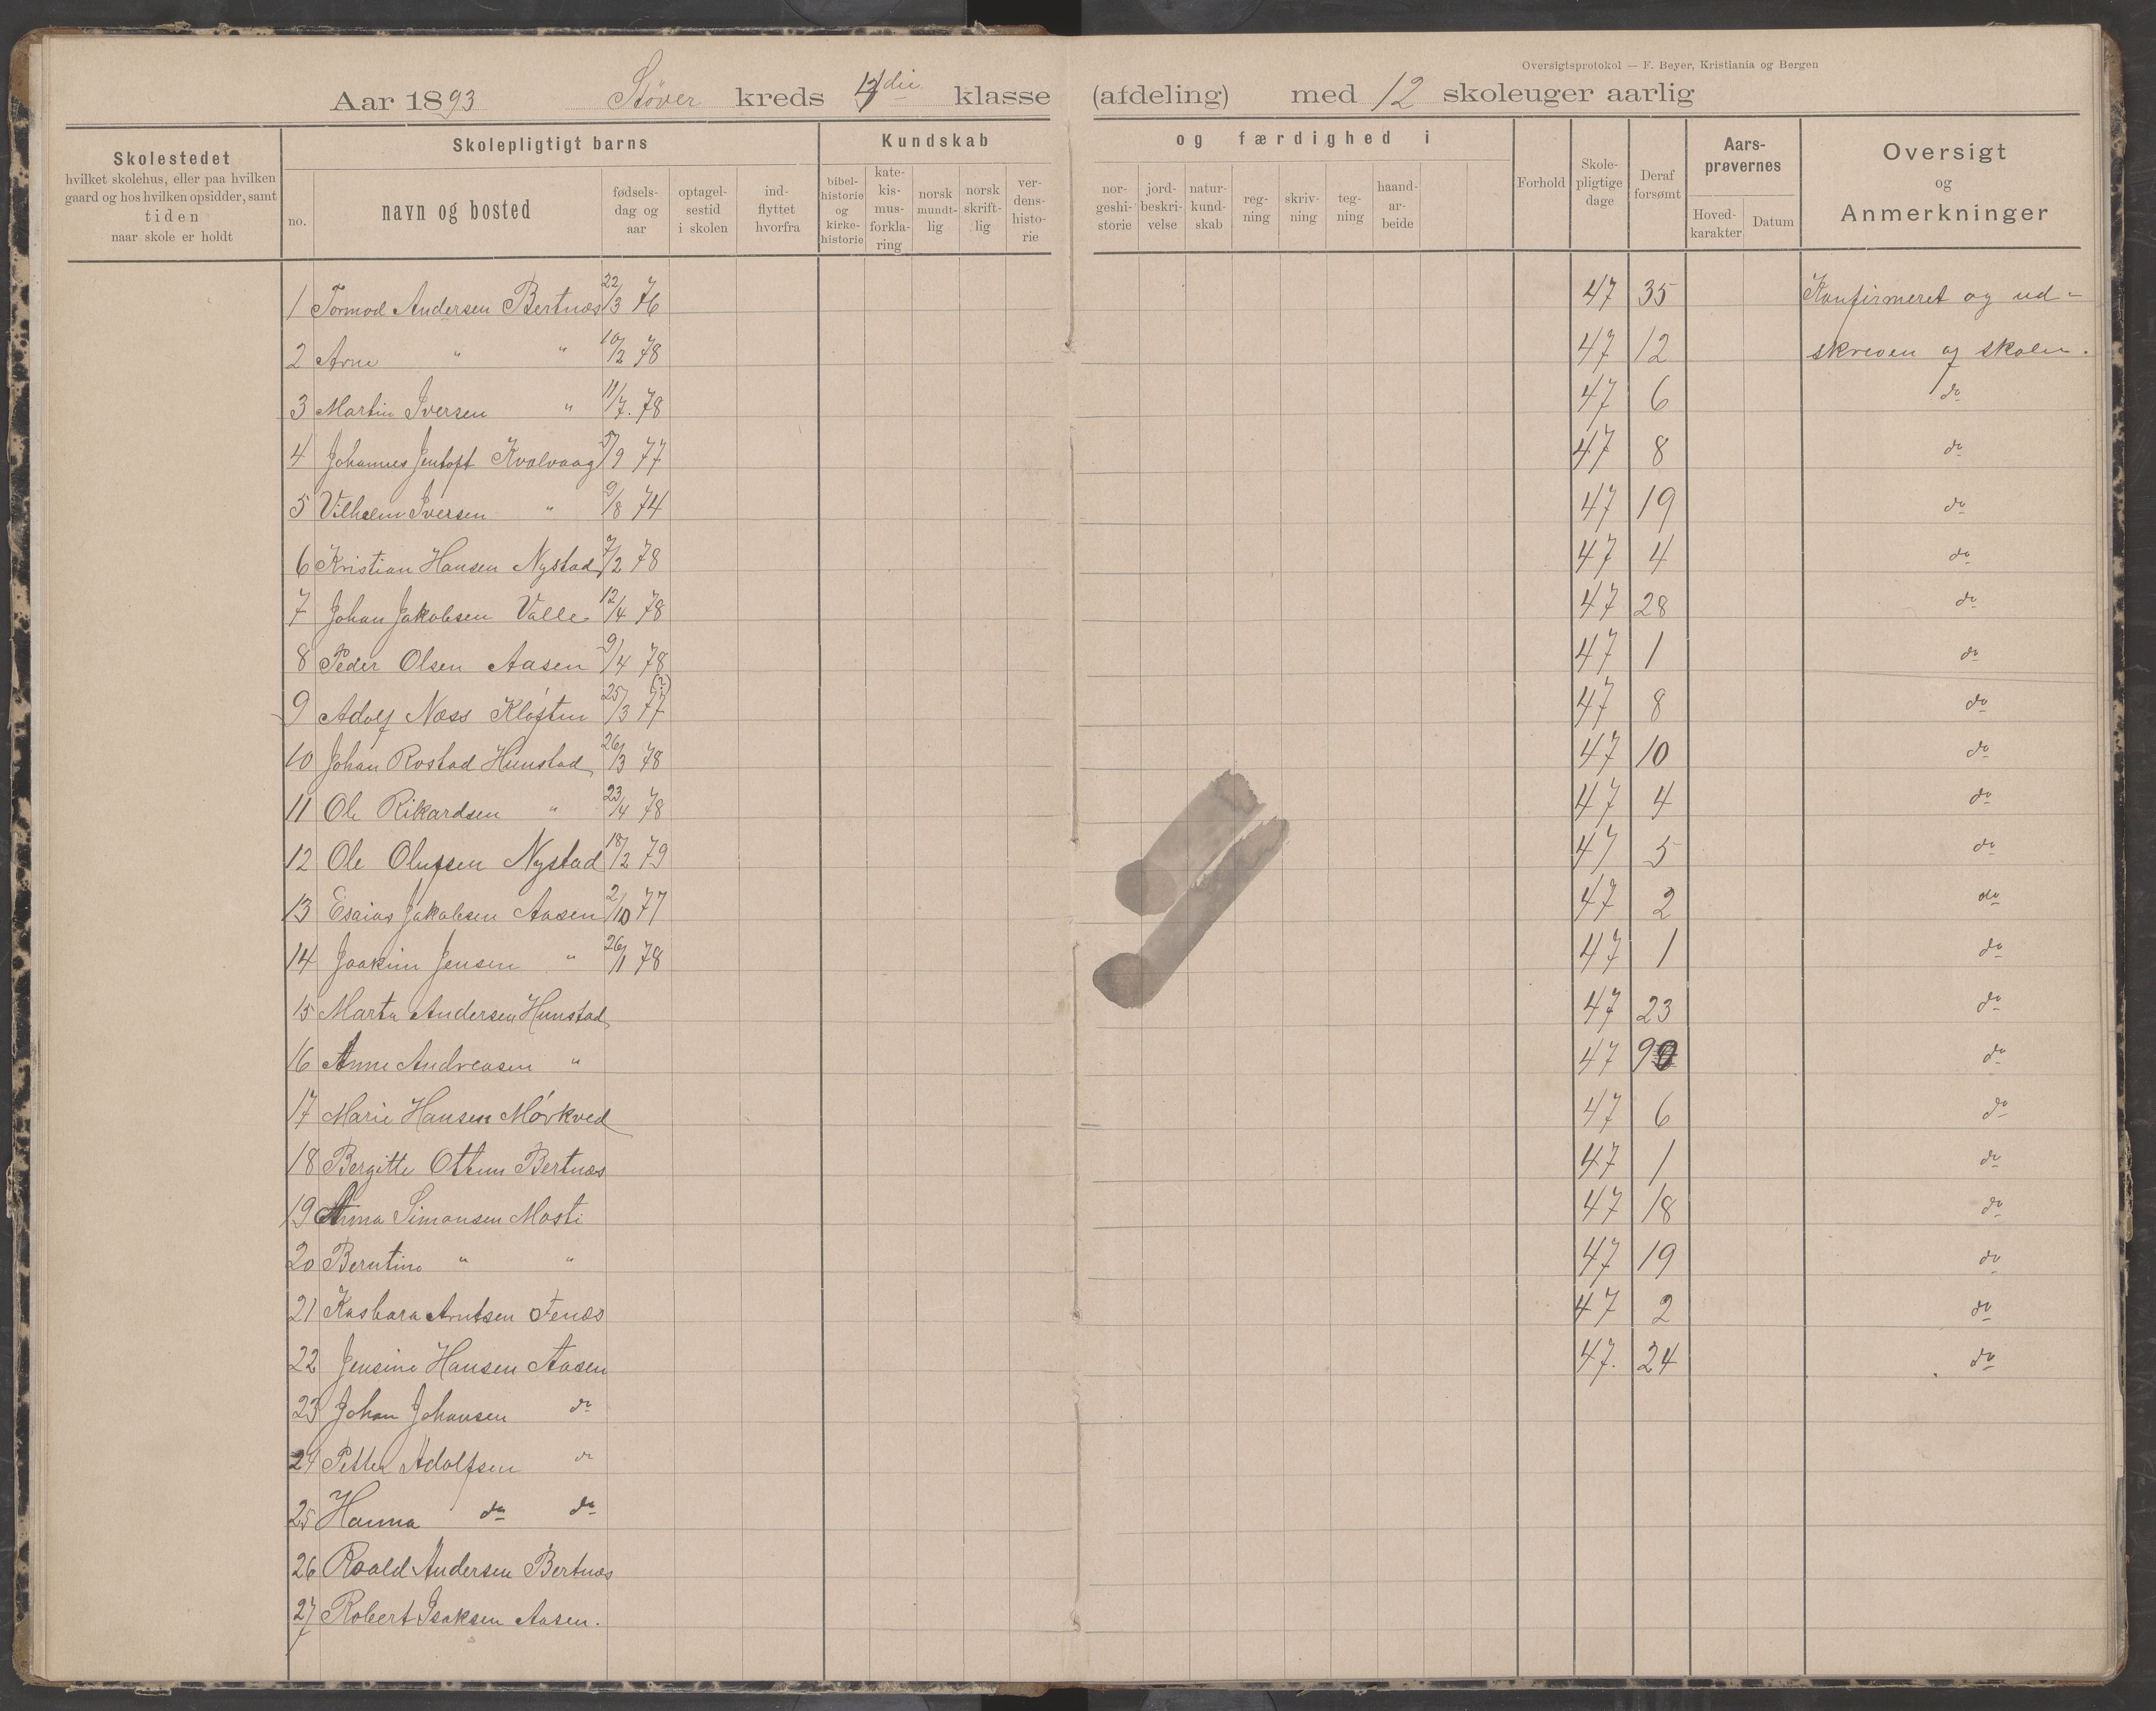 Oversigtsprotokol — F. Beyer, Kristiania og Bergen
Aar 1893 Støver kreds die klasse (afdeling) med 12 skoleuger aarlig
Skolestedet
hvilket skolehus, eller paa hvilken
gaard og hos hvilken opsidder, samt
tiden
naar skole er holdt
Skolepligtigt barns
no.
navn og bosted
fødsels-
dag og
aar
optagel-
sestid
i skolen
ind-
flyttet
hvorfra
Kundskab og færdighed i
bibel-
historie
og
kirke-
historie
kate-
kis-
mus-
forkla-
ring
norsk
mundt-
lig
norsk
skrift-
lig
ver-
dens-
histo-
rie
nor-
geshi-
storie
jord-
beskri-
velse
natur-
kund-
skab
reg-
ning
skriv-
ning
teg-
ning
haand-
ar-
beide
Forhold
Skole-
pligtige
dage
Deraf
forsømt
Aars-
prøvernes
Hoved-
karakter
Datum
Oversigt
og
Anmerkninger
1 Tormod Andersen Bertnæs 22/3 76 47 35 Konfirmeret og ud-
2 Arne " " 10/2 78 47 12 skreven af skolen.
3 Martin Iversen " 11/7. 78 47 6 do
4 Johannes Jentoft Kvalvaag /9 77 47 8 do
5 Vilhelm Iversen " 9/8 74 47 19 do
6 Kristian Hansen Nystad 7/2 78 47 4 do
7 Johan Jakobsen Valle 12/4 78 47 28 do
8 Peder Olsen Aasen 9/4 78 47 1 do
9 Adolf Næss Kløften 25/3 77 (?) 47 8 do
10 Johan Rostad Hunstad 26/3 78 47 10 do
11 Ole Rikardsen " 23/4 78 47 4 do
12 Ole Olufsen Nystad 18/2 79 47 5 do
13 Esaias Jakobsen Aasen 2/10 77 47 2 do
14 Joakim Jensen " 26/1 78 47 1 do
15 Marta Andersen Hunstad 47 23 do
16 Anne Andreasen " 47 9 do
17 Marie Hansen Mørkved 47 6 do
18 Bergitte Ottem Bertnæs 47 1 do
19 Anna Simonsen Mosti 47 18 do
20 Berntine " " 47 19 do
21 Kasbara Arntsen Fenæs 47 2 do
22 Jensine Hansen Aasen 47. 24 do
23 Johan Johansen do
24 Petter Adolfsen do
25 Hanna do do
26 Roald Andersen Bertnæs
27 Robert Isaksen Aasen.